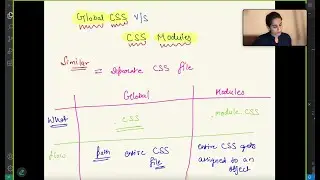 Global CSS V/S
CSS Modules
Similar = Separate CSS file
Global Modules
What .CSS .module CSS
How Path entire CSS file entire CSS gets assigned to an object